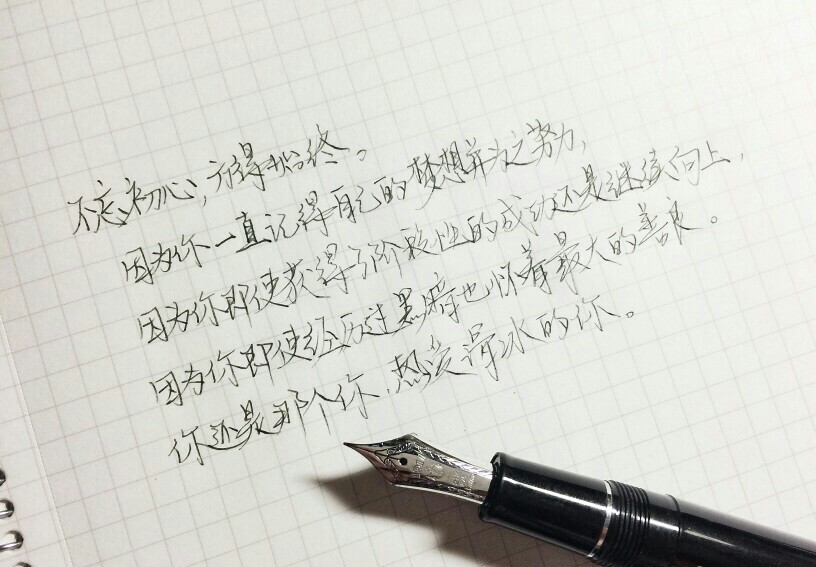 不忘初心，方得始终。
因为你一直记得自己的梦想并为之努力，
因为你即使获得了阶段性的成功还是继续向上，
因为你即使经历过黑暗也怀着最大的善良。
你还是那个你，热爱滑冰的你。